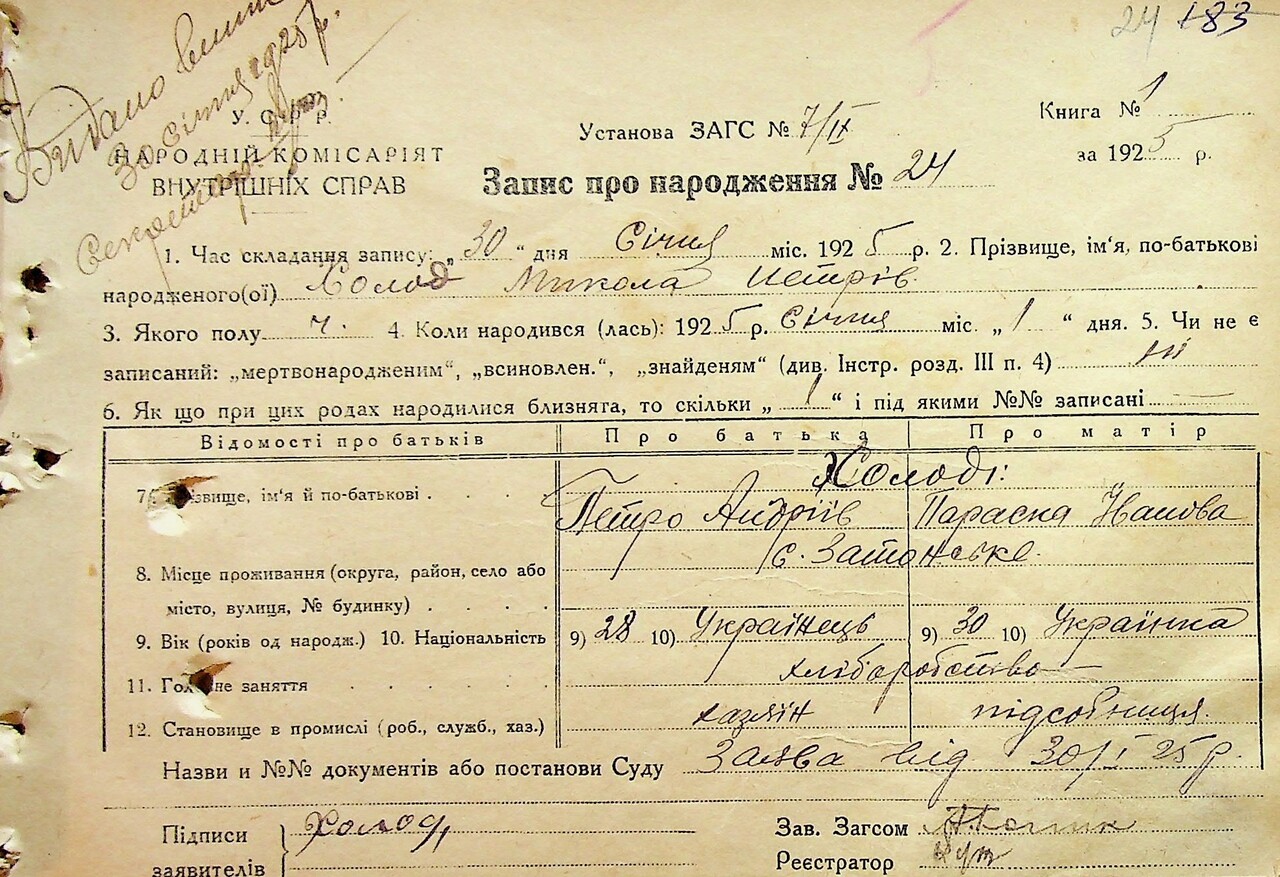 24 183
Видано
30 січня 1925 р.
У. С. Р. Р.
НАРОДНІЙ КОМІСАРІЯТ
ВНУТРІШНІХ СПРАВ
Установа ЗАГС № 7/IX
Книга № 1
за 1925 р.
Запис про народження № 24
1. Час складання запису: „30“ дня Січня міс. 1925 р. 2. Прізвище, ім'я, по-батькові
народженого(ої) Холод Микола Петрів.
3. Якого полу ч. 4. Коли народився (лась): 1925 р. Січня міс. „1“ дня. 5. Чи не є
записаний: „мертвонародженим“, „всиновлен.“, „знайденям“ (див. Інстр. розд. III п. 4) ні
6. Як що при цих родах народилися близнята, то скільки „1“ і під якими №№ записані —
Відомості про батьків Про батька Про матір
Холоді:
7. Прізвище, ім'я й по-батькові . . . . Петро Андріїв Параска Іванова
с. Затонське.
8. Місце проживання (округа, район, село або
місто, вулиця, № будинку) . . . .
9. Вік (років од народж.) 10. Національність 9) 28 10) Українець 9) 30 10) Українка
11. Головне заняття . . . . . хліборобство —
12. Становище в промислі (роб., служб., хаз.) хазяїн підсобниця.
Назви и №№ документів або постанови Суду Заява від 30/I 25 р.
Підписи Холод
заявителів
Зав. Загсом
Реєстратор